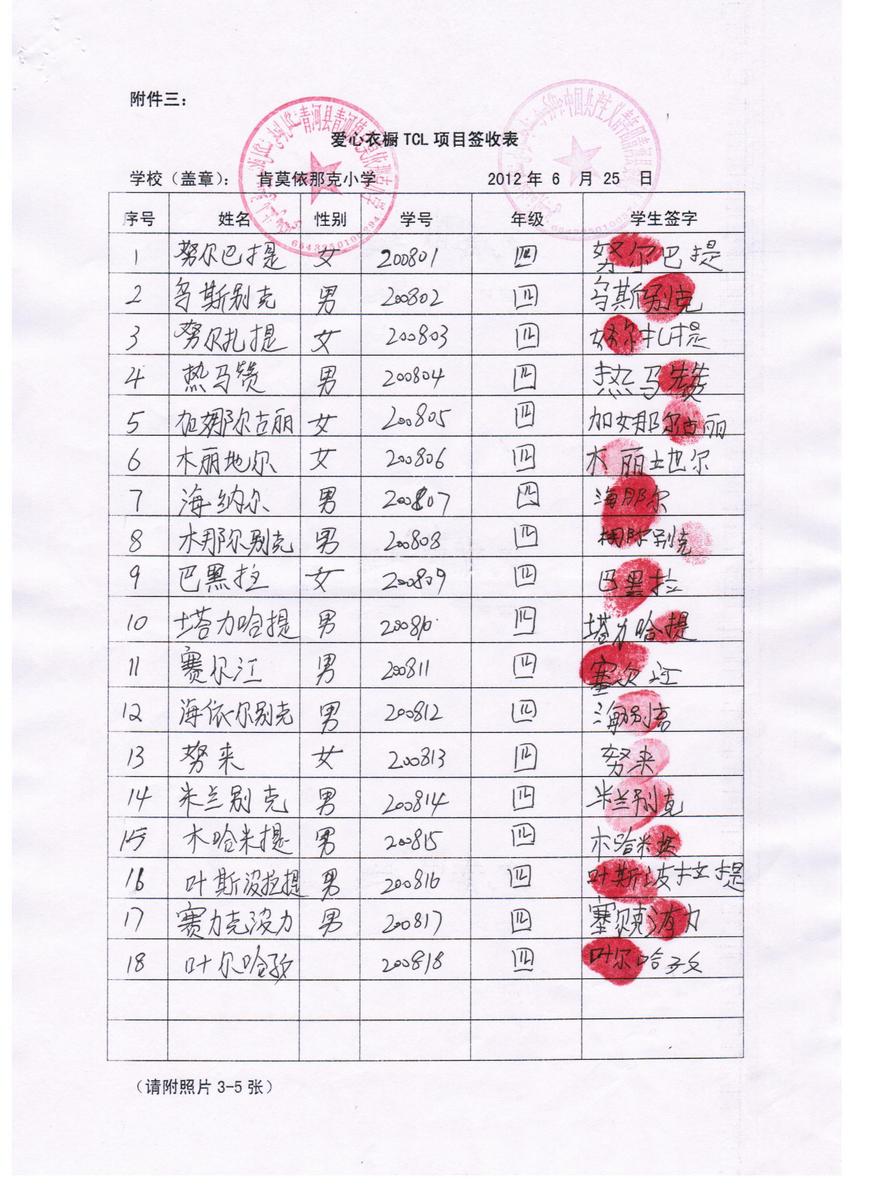 附件三：
爱心衣橱 TCL 项目签收表
学校（盖章）： 肯莫依那克小学 2012 年 6 月 25 日
序号 姓名 性别 学号 年级 学生签字
1 努尔巴提 女 200801 四 努尔巴提
2 乌斯别克 男 200802 四 乌斯别克
3 努尔扎提 女 200803 四 努尔扎提
4 热马赞 男 200804 四 热马赞
5 加娜尔古丽 女 200805 四 加娜尔古丽
6 木丽地尔 女 200806 四 木丽地尔
7 海纳尔 男 200807 四 海那尔
8 木那尔别克 男 200808 四 别克
9 巴黑拉 女 200809 四 巴黑拉
10 塔力哈提 男 200810 四 塔力哈提
11 赛尔江 男 200811 四 赛尔江
12 海依尔别克 男 200812 四 海别克
13 努来 女 200813 四 努来
14 米兰别克 男 200814 四 米兰别克
15 木哈米提 男 200815 四 木哈米提
16 叶斯波拉提 男 200816 四 叶斯波拉提
17 赛力克波力 男 200817 四 波力
18 叶尔哈孜 200818 四 叶尔哈孜
（请附照片 3-5 张）